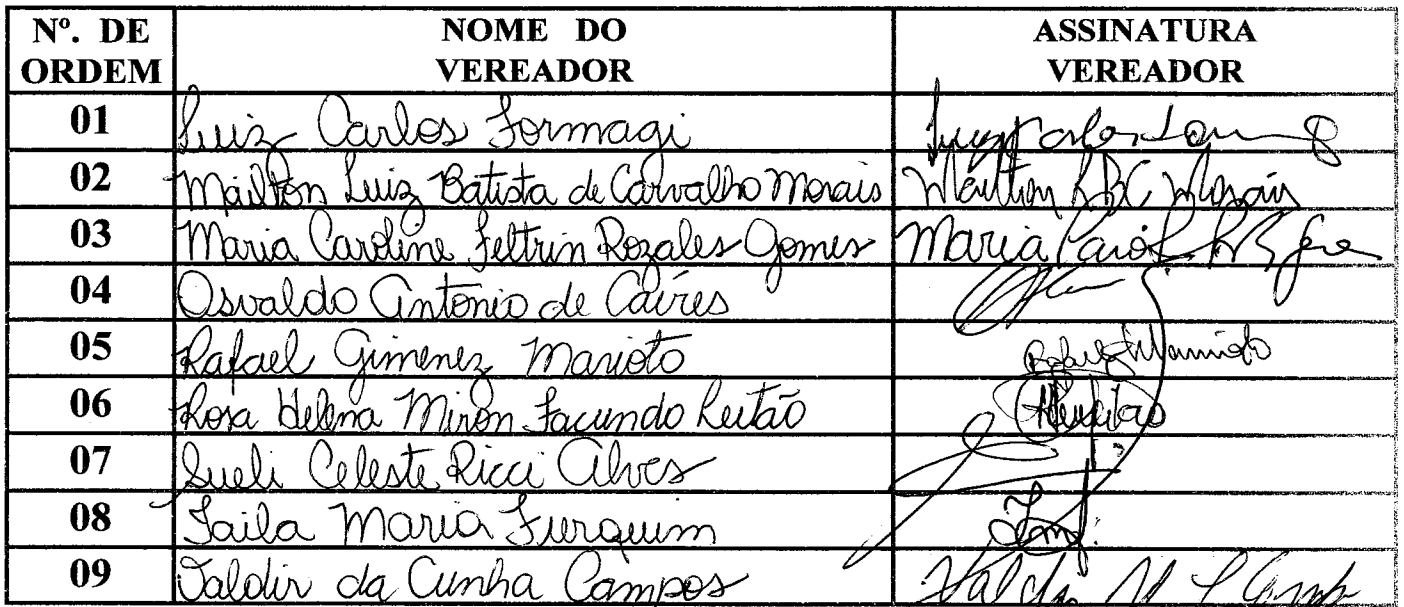 Nº. DE ORDEM NOME DO VEREADOR ASSINATURA VEREADOR
01 Luiz Carlos Formagi
02 Mailton Luiz Batista de Carvalho Morais Mailton LBC Morais
03 Maria Caroline Feltrin Rozales Gomes Maria
04 Osvaldo Antonio de Caires
05 Rafael Gimenez Marioto
06 Rosa Helena Miron Facundo Leitão
07 Sueli Celeste Ricci Alves
08 Taila Maria Furquim
09 Valdir da Cunha Campos